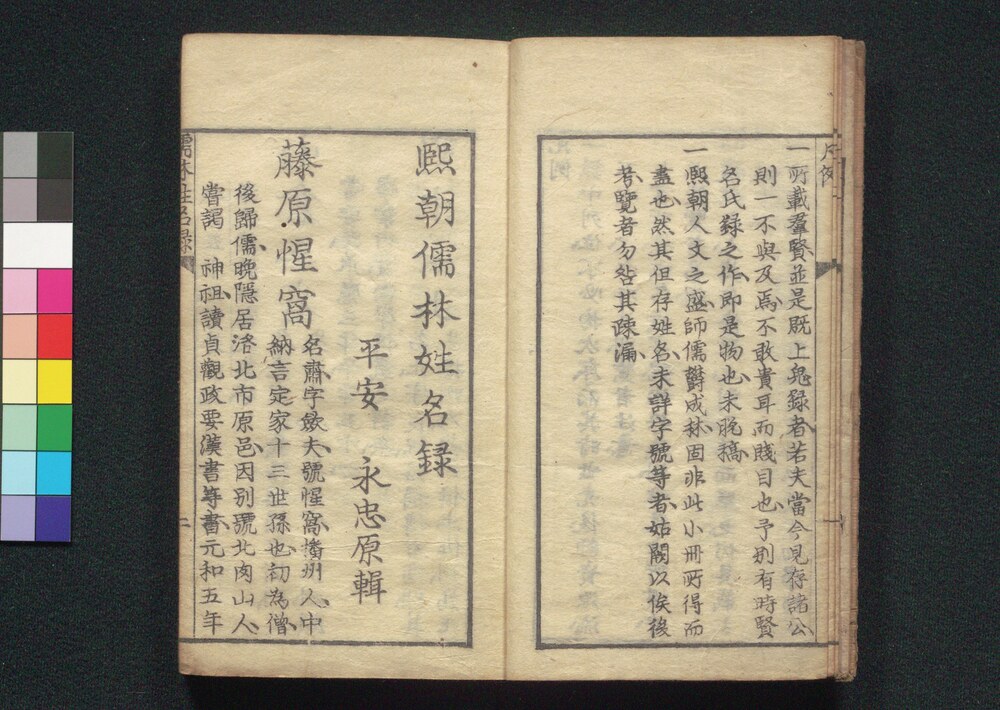 凡例
一所載羣賢並是既上鬼録者若夫當今見存諸公
則一不與及焉不敢貴耳而賤目也予別有時賢
名氏録之作即是物也未脱稿
一熙朝人文之盛師儒欝成林固非此小冊所得而
盡也然其但存姓名未詳字號等者姑闕以俟後
考覽者勿咎其疎漏
熙朝儒林姓名録
平安 永忠原輯
藤原惺窩
名肅字斂夫號惺窩播州人中
納言定家十三世孫也初為僧
後歸儒晩隱居洛北市原邑因別號北肉山人
嘗謁 神祖讀貞觀政要漢書等書元和五年
儒林姓名録
二